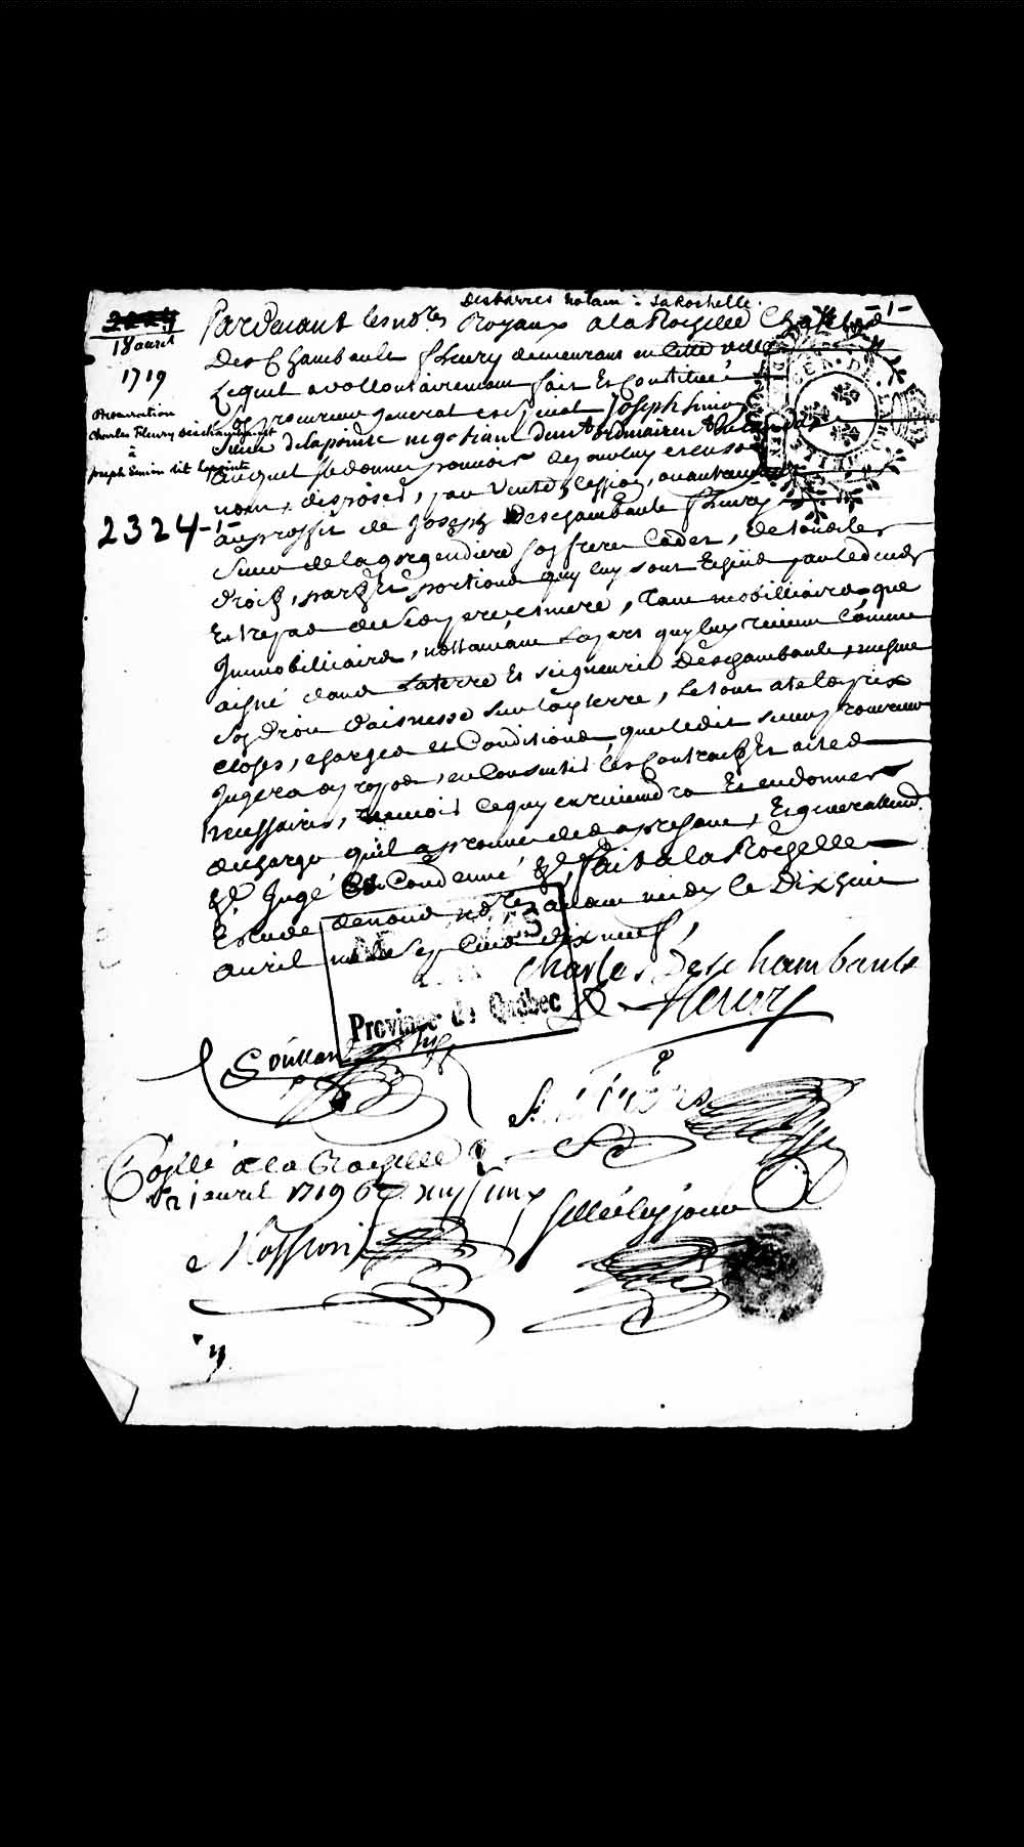 Desbarres notaire - La Rochelle.
-1-
18 avril
1719
procuration
Charles Fleury Deschambault
à
Joseph Simon dit Lapointe
2324-1-
Pardevant les no.res Royaux a la Rochelle Charles
Des Chambault fleury demeurant en cette ville
Lequel a vollontairement fait Et Constitué
procureur general et special Joseph Simon
Sieur delapointe negotiant
auquel Il donne pouvoir de pour luy et en son
nom, disposer, par Vente, Cession,
au proffit de Joseph Deschambault fleury
Sieur de la gorgendiere son frere Cadet, de tous les
droits, parts Et portions quy luy sont Escheus par le deceds
Et trepas de Son pere et mere, Tant mobilliaires que
Immobilliaires, nottament La part quy luy revient Comme
aisné dans La terre Et seigneurie Deschambault, mesme
Son droit daisnesse sur lad. terre, Le tout a tels prix
clozes, charges et Conditions, que ledit sieur procureur
Jugera a propos, en Consentir les Contracts Et actes
necessaires, recevoir ce quy en reviendra Et en donner
decharge qu'il approuve des a present, Et generallemt.
&c. Jugé Et Condemné &c. fait a la Rochelle
Estude de nous no.res avant midy le Dix huit
avril mil Sept Cens dix neuf,
Charles Deschambault
Fleury
Province de Québec
Soullard
Desbarres
Conllé a la Rochelle le
21 avril 1719
Scellé led. jour